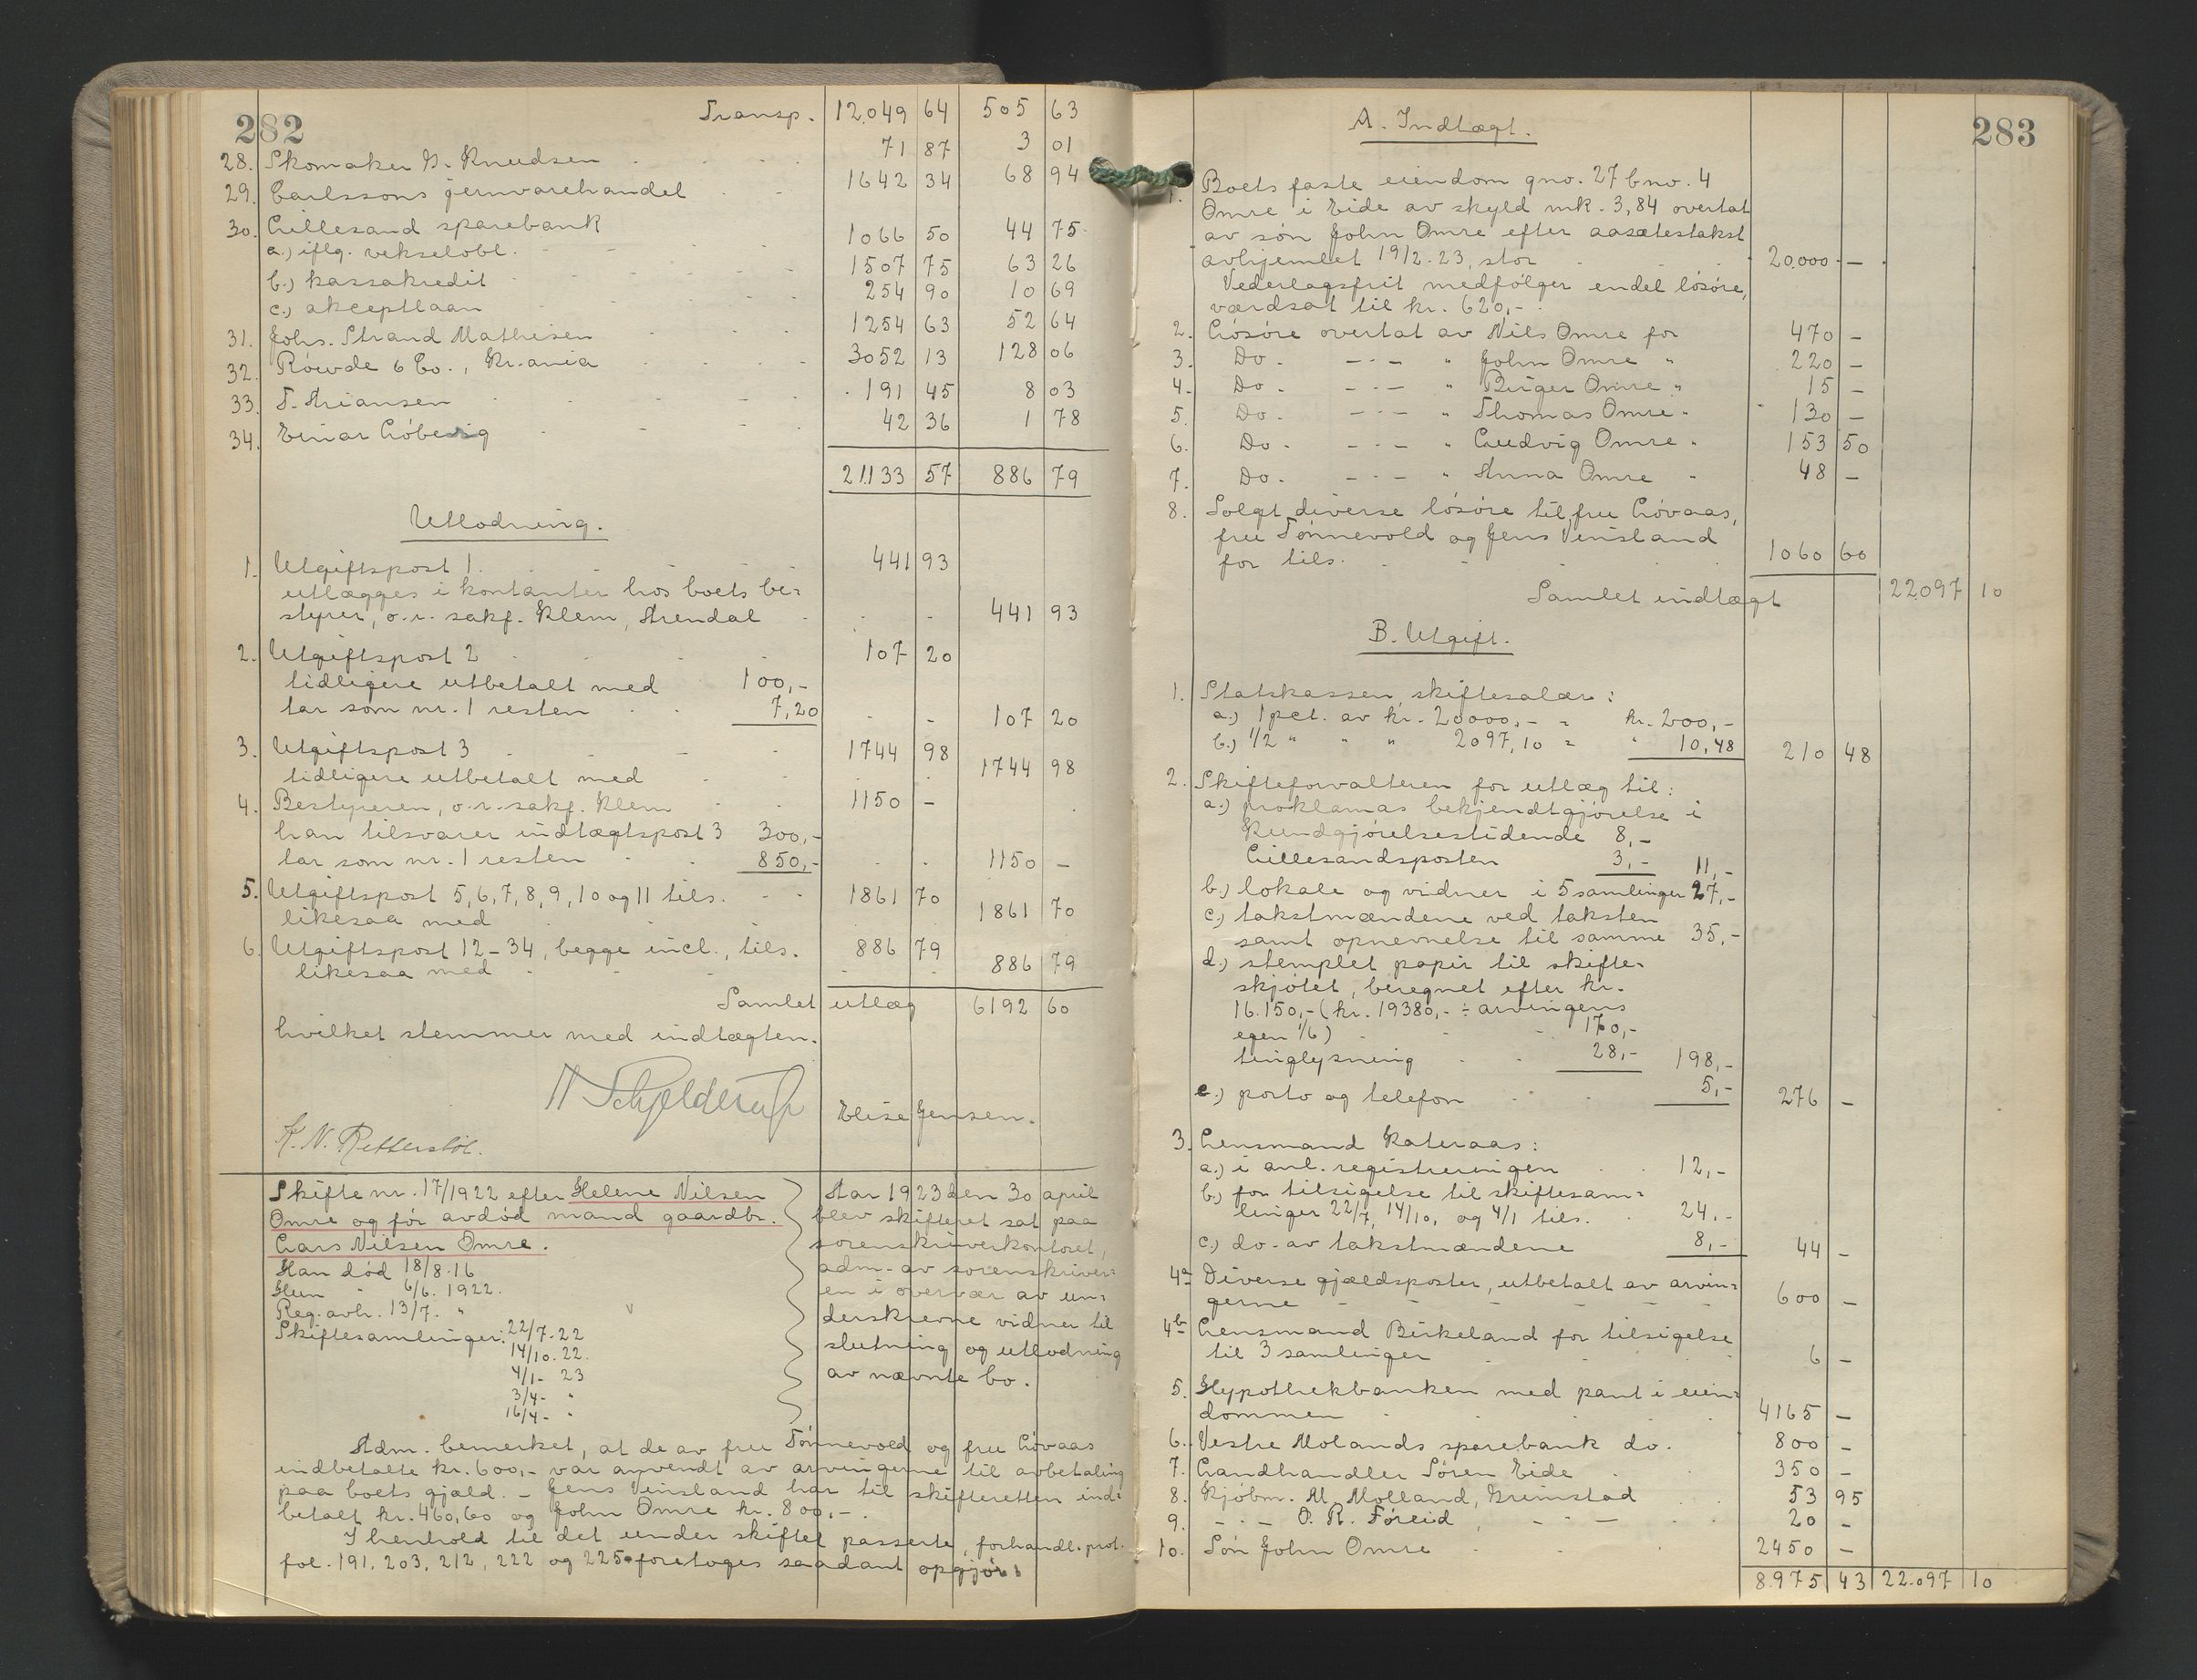 282
Transp. 12.049 64 505 63
28. Skomaker N. Knudsen 71 87 3 01
29. Carlssons jernvarehandel 1642 34 68 94
30. Lillesand sparebank
a.) iflg. vekselobl. 1066 50 44 75
b.) kassakredit 1507 75 63 26
c.) akceptlaan 254 90 10 69
31. Johs. Strand Mathisen 1254 63 52 64
32. Röwde & Co., Kr.ania 3052 13 128 06
33. T. Ariansen 191 45 8 03
34. Einar Löbersig 42 36 1 78
21.133 57 886 79
Utlodning.
1. Utgiftspost 1. 441 93
utlægges i kontanter hos boets be=
styrer, o.r. sakf. Klem, Arendal 441 93
2. Utgiftspost 2 107 20
tidligere utbetalt med 100,-
tar som nr. 1 resten 7,20 107 20
3. Utgiftspost 3 1744 98
tidligere utbetalt med 1744 98
4. Bestyreren, o.r. sakf. Klem 1150 -
han tilsvarer indtægtspost 3 300,-
tar som nr. 1 resten 850,- 1150 -
5. Utgiftspost 5, 6, 7, 8, 9, 10 og 11 tils. 1861 70
likesaa med 1861 70
6. Utgiftspost 12-34, begge incl., tils. 886 79
likesaa med 886 79
Samlet utlæg 6192 60
hvilket stemmer med indtægten.
N Schjelderup
Elise Jensen.
K. N. Retterstöl.
Skifte nr. 17/1922 efter Helene Nilsen
Omre og för avdöd mand gaardbr.
Lars Nilsen Omre.
Han död 18/8.16
Hun " 6/6. 1922.
Reg. avh. 13/7. "
Skiftesamlinger: 22/7.22
14/10.22.
4/1- 23
3/4- "
16/4- "
Aar 1923 den 30 april
blev skifteret sat paa
sorenskriverkontoret,
adm. av sorenskriver=
en i overvær av un=
derskrevne vidner til
slutning og utlodning
av nævnte bo.
Adm. bemerket, at de av fru Tönnevold og fru Lövaas
indbetalte kr. 600,- var anvendt av arvingerne til avbetaling
paa boets gjæld. - Jens Vinsland har til skifteretten ind=
betalt kr. 460,60 og John Omre kr. 800,-.
I henhold til det under skiftet passerte, forhandl. prot.
fol. 191, 203, 212, 222 og 225 foretoges saadant opgjör:
283
A. Indtægt.
1. Boets faste eiendom gno. 27 bno. 4
Omre i Eide av skyld mk. 3,84 overtat
av sön John Omre efter aasætestakst
avhjemlet 19/2.23, stor 20.000 -
Vederlagsfrit medfölger endel lösöre,
værdsat til kr. 620,-
2. Lösöre overtat av Nils Omre for 470 -
3. Do. -"- " John Omre " 220 -
4. Do. -"- " Birger Omre " 15 -
5. Do. -"- " Thomas Omre " 130 -
6. Do. -"- " Ludvig Omre " 153 50
7. Do. -"- " Anna Omre " 48 -
8. Solgt diverse lösöre til fru Lövaas,
fru Tönnevold og Jens Vinsland
for tils. 1060 60
Samlet indtægt 22.097 10
B. Utgift.
1. Statskassen, skiftesalær:
a.) 1 pct. av kr. 20000,- = kr. 200,-
b.) 1/2 " " " 2097,10 = " 10,48 210 48
2. Skifteforvalteren for utlæg til:
a.) proklamas bekjendtgjörelse i
Kundgjörelsestidende 8,-
Lillesandsposten 3,- 11,-
b.) lokale og vidner i 5 samlinger 27,-
c.) takstmændene ved taksten
samt opnevnelse til samme 35,-
d.) stemplet papir til skifte-
skjötet, beregnet efter kr.
16.150,- (kr. 19380,- ÷ arvingens
egen 1/6) 170,-
tinglysning 28,- 198,-
e.) porto og telefon 5,- 276 -
3. Lensmand Kateraas:
a.) i anl. registreringen 12,-
b.) for tilsigelse til skiftesam=
linger 22/7, 14/10, og 4/1 tils. 24,-
c.) do. av takstmændene 8,- 44 -
4a Diverse gjældsposter, utbetalt av arvin=
gerne 600 -
4b Lensmand Birkeland for tilsigelse
til 3 samlinger 6 -
5. Hypothekbanken med pant i eien=
dommen 4165 -
6. Vestre Molands sparebank do. 800 -
7. Landhandler Sören Eide 350 -
8. Kjöbm. M. Molland, Grimstad 53 95
9. -"- O. R. Föreid, -"- 20 -
10. Sön John Omre 2450 -
8.975 43 22.097 10